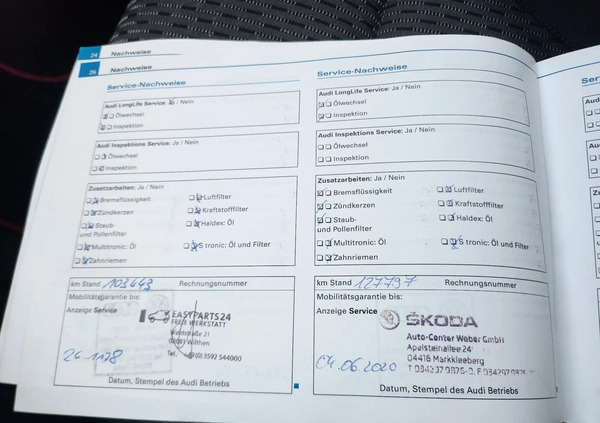 24 Nachweise
26 Nachweise
Service-Nachweise
Audi LongLife Service: Ja / Nein
Ölwechsel
Inspektion
Audi Inspektions Service: Ja / Nein
Ölwechsel
Inspektion
Zusatzarbeiten: Ja / Nein
Bremsflüssigkeit Luftfilter
Zündkerzen Kraftstofffilter
Staub- Haldex: Öl
und Pollenfilter
Multitronic: Öl S tronic: Öl und Filter
Zahnriemen
km Stand 103443 Rechnungsnummer
Mobilitätsgarantie bis:
Anzeige Service
EASYPARTS24
FREIE WERKSTATT
Waldstraße 21
Wilthen
Tel.: 03592 544000
Datum, Stempel des Audi Betriebs
Service-Nachweise
Audi LongLife Service: Ja / Nein
Ölwechsel
Inspektion
Audi Inspektions Service: Ja / Nein
Ölwechsel
Inspektion
Zusatzarbeiten: Ja / Nein
Bremsflüssigkeit Luftfilter
Zündkerzen Kraftstofffilter
Staub- Haldex: Öl
und Pollenfilter
Multitronic: Öl S tronic: Öl und Filter
Zahnriemen
km Stand 127797 Rechnungsnummer
Mobilitätsgarantie bis:
Anzeige Service
ŠKODA
Auto-Center Weber GmbH
Apelsteinallee 24
04416 Markkleeberg
04.06.2020
Datum, Stempel des Audi Betriebs